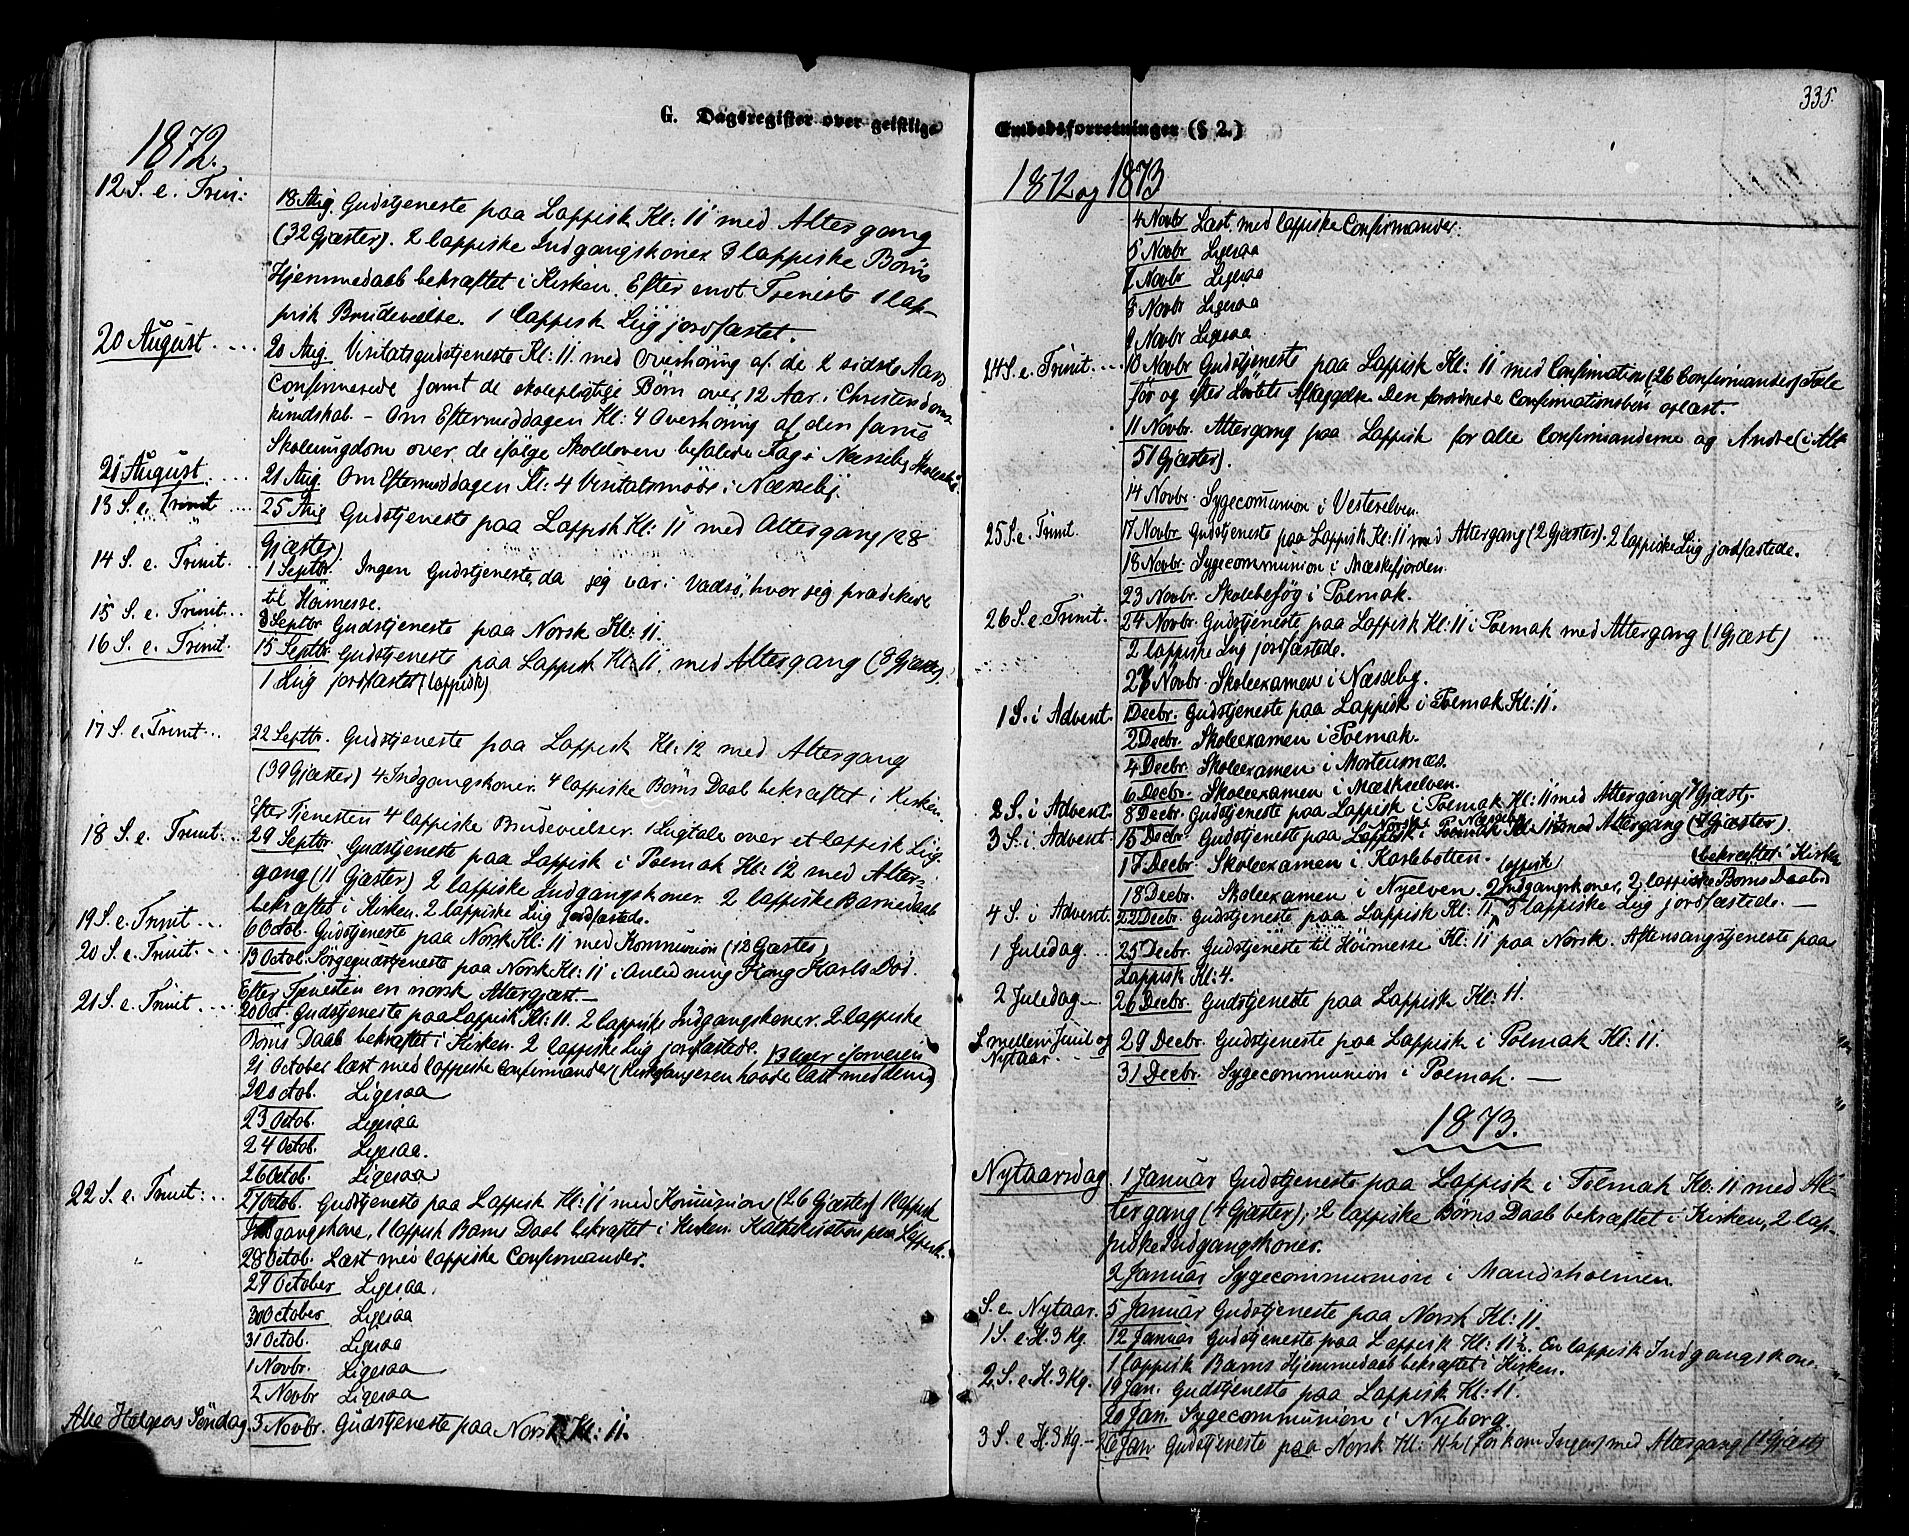 G. Dagsregister over geistlige
1872.
12 S. e. Trin:
18 Aug. Gudstjeneste paa Lappisk Kl: 11 med Altergang
(32 Gjæster). 2 lappiske Indgangskoner. 3 lappiske Børns
Hjemmedaab bekræftet i Kirken. Efter Tjeneste 1 lap-
pisk Brudevielse. 1 lappisk Liig jordfæstet.
20 August
20 Aug. Visitatsgudstjeneste Kl: 11 med Overhøring af de 2 sidste Aars
Confirmerede samt de skolepligtige Børn over 12 Aar i Christendoms
kundskab. - Om Eftermiddagen Kl: 4 Overhøring af den
Skoleungdom over de ifølge Skoleloven befalede Fag i Næsseby
21 August
21 Aug. Om Eftermiddagen Kl: 4 Visitatsmøde i Næsseby.
13 S. e. Trinit
25 Aug Gudstjeneste paa Lappisk Kl: 11 med Altergang (28
Gjæster)
14 S. e. Trinit.
1 Septbr. Ingen Gudstjeneste, da jeg var i Vadsø, hvor jeg prædikede
til Høimesse.
15 S. e. Trinit
8 Septbr Gudstjeneste paa Norsk Kl: 11.
16 S. e. Trinit
15 Septbr. Gudstjeneste paa Lappisk Kl: 11, med Altergang (8 Gjæster).
1 Liig jordfæstet (lappisk)
17 S. e. Trinit
22 Septbr. Gudstjeneste paa Lappisk Kl: 12 med Altergang
(39 Gjæster) 4 Indgangskoner. 4 lappiske Børns Daab bekræftet i Kirken.
Efter Tjenesten 4 lappiske Brudevielser. 1 Liigtale over et lappisk Liig.
18 S. e. Trinit:
29 Septbr. Gudstjeneste paa Lappisk i Polmak Kl: 12 med Alter-
gang (11 Gjæster) 2 lappiske Indgangskoner. 2 lappiske Barnedaab
bekræftet i Kirken. 2 lappiske Liig jordfæstede.
19 S. e. Trinit
6 Octob. Gudstjeneste paa Norsk Kl: 11 med Kommunion (12 Gjæster)
20 S. e. Trinit.
13 Octob. Sørgegudstjeneste paa Norsk Kl: 11 i Anledning Kong Karls Død.
Efter Tjenesten en norsk Altergjæst.
21 S. e. Trinit
20 Oct. Gudstjeneste paa Lappisk Kl: 11. 2 lappiske Indgangskoner. 2 lappiske
Børns Daab bekræftet i Kirken. 2 lappiske Liig jordfæstede.
21 October læst med lappiske Confirmander (Kirkesangeren havde læst med dem
22 Octob. Ligesaa
23 Octob. Ligesaa
24 Octob. Ligesaa.
26 Octob. Ligesaa
22 S. e. Trinit:
27 Octob. Gudstjeneste paa Lappisk Kl: 11 med Komunion (26 Gjæster) 1 lappisk
Indgangskone, 1 lappisk Børns Daab bekræftet i Kirken. Katekisation paa Lappisk.
28 Octob. Læst med lappiske Confirmander.
29 October Ligesaa.
30 October Ligesaa
31 Octob. Ligesaa
1 Novbr. Ligesaa
2 Novbr Ligesaa
Alle Helgens Søndag.
3 Novbr. Gudstjeneste paa Norsk Kl: 11.
Embedsforretninger (§ 2.)
335.
1872 og 1873
4 Novbr Læst med lappiske Confirmander.
5 Novbr Ligesaa
Novbr. Ligesaa
8 Novbr Ligesaa
9 Novbr Ligesaa
24 S. e. Trinit.
10 Novbr Gudstjeneste paa Lappisk Kl: 11 med Confirmation (26 Confirmander) Tale
før og efter Løftets Aflæggelse. Den forordnede Confirmationsbøn oplæst.
11 Novbr. Altergang paa Lappisk for alle Confirmanderne og Andre (i Alt
51 Gjæster).
14 Novbr. Sygecomunion i Vesterelven.
25 S. e. Trinit.
17 Novbr Gudstjeneste paa Lappisk Kl: 11 med Altergang (2 Gjæster). 2 lappiske Liig jordfæstede.
18 Novbr. Sygecommunion i Mæskefjorden.
23 Novbr. Skolebesøg i Polmak.
26 S. e. Trinit.
24 Novbr. Gudstjeneste paa Lappisk Kl: 11 i Polmak med Altergang (1 Gjæst)
2 lappiske Liig jordfæstede.
Novbr. Skoleexamen i Næsseby.
1 S. i Advent.
1 Decbr. Gudstjeneste paa Lappisk i Polmak Kl: 11.
2 Decbr. Skoleexamen i Polmak.
4 Decbr. Skoleexamen i Mortensnæs.
6 Decbr. Skoleexamen i Mæskeelven.
2 S. i Advent.
8 Decbr. Gudstjeneste paa Lappisk i Polmak Kl: 11 med Altergang (1 Gjæst).
3 S. i Advent.
15 Decbr. Gudstjeneste paa Norsk i Næsseby Kl. 11 med Altergang (Gjæster).
17 Decbr. Skoleexamen i Karlebotten.
18 Decbr. Skoleexamen i Nyelven. 2 lappisk Indgangskoner, 2 lappiske Børns Daab
(bekræftet i Kirken
4 S. i Advent.
22 Decbr. Gudstjeneste paa Lappisk Kl: 11, 5 lappiske Liig jordfæstede.
1 Juledag
25 Decbr. Gudstjeneste til Høimesse Kl: 11 paa Norsk. Aftensangstjeneste paa
Lappisk Kl: 4.
2 Juledag
26 Decbr. Gudstjeneste paa Lappisk Kl: 11.
S. mellem Juul og
Nytaar
29 Decbr. Gudstjeneste paa Lappisk i Polmak Kl: 11.
31 Decbr. Sygecommunion i Polmak.
1873.
Nytaarsdag
1 Januar Gudstjeneste paa Lappisk i Polmak Kl: 11 med Al-
tergang (4 Gjæster); 2 lappiske Børns Daab bekræftet i Kirken, 2 lap-
piske Indgangskoner.
2 Januar Sygecommunion i Mandsholmen.
S. e. Nytaar.
5 Januar Gudstjeneste paa Norsk Kl: 11.
1 S. e. H. 3 Kg.
12 Januar Gudstjeneste paa Lappisk Kl: 11½. En lappisk Indgangskone.
1 lappisk Barns Hjemmedaab bekræftet i Kirken.
2 S. e. H. 3 Kg.
19 Jan. Gudstjeneste paa Lappisk Kl: 11.
20 Jan. Sygecommunion i Nyborg.
3 S. e. H. 3 Kg.
26 Jan Gudstjeneste paa Norsk Kl: 11½ (før kom Ingen) med Altergang (1 Gjæst)